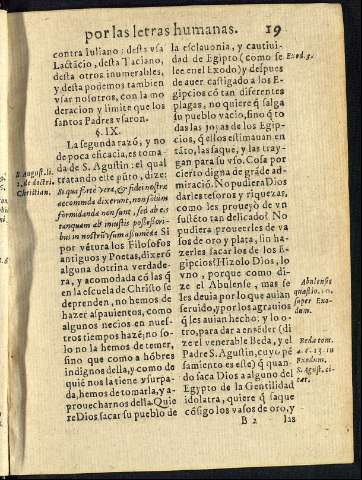 por las letras humanas. 19
contra Iuliano; desta vsa
Lactãcio, desta Taciano,
desta otros inumerables,
y desta podemos tambien
vsar nosotros, con la mo
deracion y limite que los
santos Padres vsaron.
§. IX.
La segunda razó, y no
de poca eficacia, es toma
da de S. Agustin: el qual
tratando este pũto, dize:
Si que forte vera, & fidei nostræ
accommoda dixerunt, non solum
formidanda non sunt, sed ab eis
tanquam ab iniustis possessori-
bus in nostrũ vsum assumēda. Si
por vétura los Filosofos
antiguos y Poetas, dixeró
alguna dotrina verdade-
ra, y acomodada có las q̃
en la escuela de Christo se
deprenden, no hemos de
hazer alpauientos, como
algunos necios en nues-
tros tiempos hazé; no so-
lo no la hemos de temer,
sino que como a hóbres
indignos della, y como de
quié nos la tiene vsurpa-
da, hemos de tomarla, y a-
prouecharnos della. Quie
re Dios sacar su pueblo de
la esclauonia, y cautiui-
dad de Egipto (como se
lee en el Exodo) y despues
de auer castigado a los E-
gipcios có tan diferentes
plagas, no quiere q̃ salga
su pueblo vacio, sino q̃ to
das las joyas de los Egip-
cios, q̃ ellos estimauan en
táto, las saque, y las tray-
gan para su vso. Cosa por
cierto digna de gráde ad-
miració. No pudiera Dios
darles tesoros y riquezas,
como les proueyó de vn
sustéto tan delicado? No
pudiera proueerles de va
sos de oro y plata, sin ha-
zerles sacar los de los E-
gipcios? Hizolo Dios, lo
vno, porque como di-
ze el Abulense, mas se
les deuia por lo que auian
seruido, y por los agrauios
q̃ les auian hecho; y lo o-
tro, para dar a enséder (di
ze el venerable Beda, y el
Padre S. Agustin, cuyo pé
samiento es este) q̃ quan-
do saca Dios a alguno del
Egypto de la Gentilidad
idolatra, quiere q̃ saque
cósigo los vasos de oro, y
B 2 las
S. August. li.
2. de doctri.
Christian.
Exod. 3.
Abulense
quæstio. 10.
super Exo-
dum.
Beda tom.
4. c. 13. in
Exodum.
S. Agust. ci-
tat.